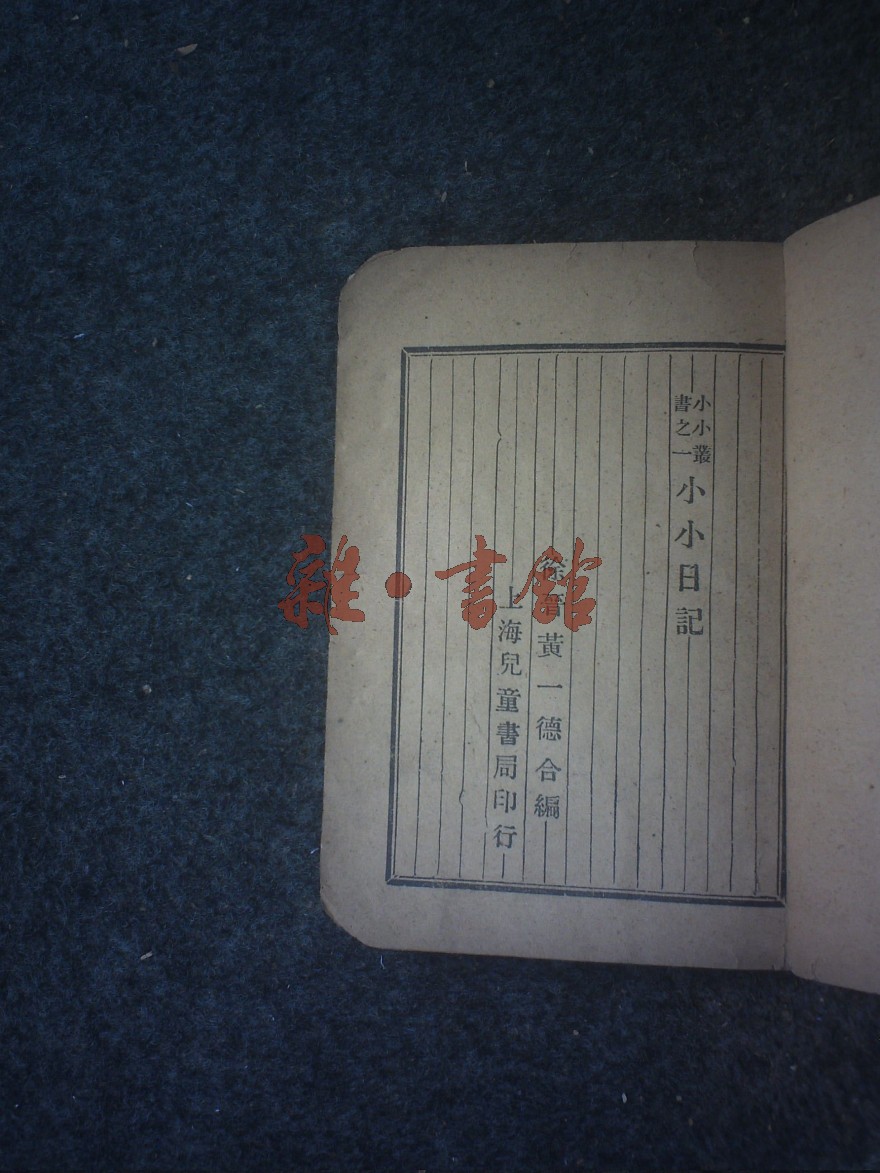 小小叢
書之一
小小日記
徐晉 黃一德合編
上海兒童書局印行
雜·書館